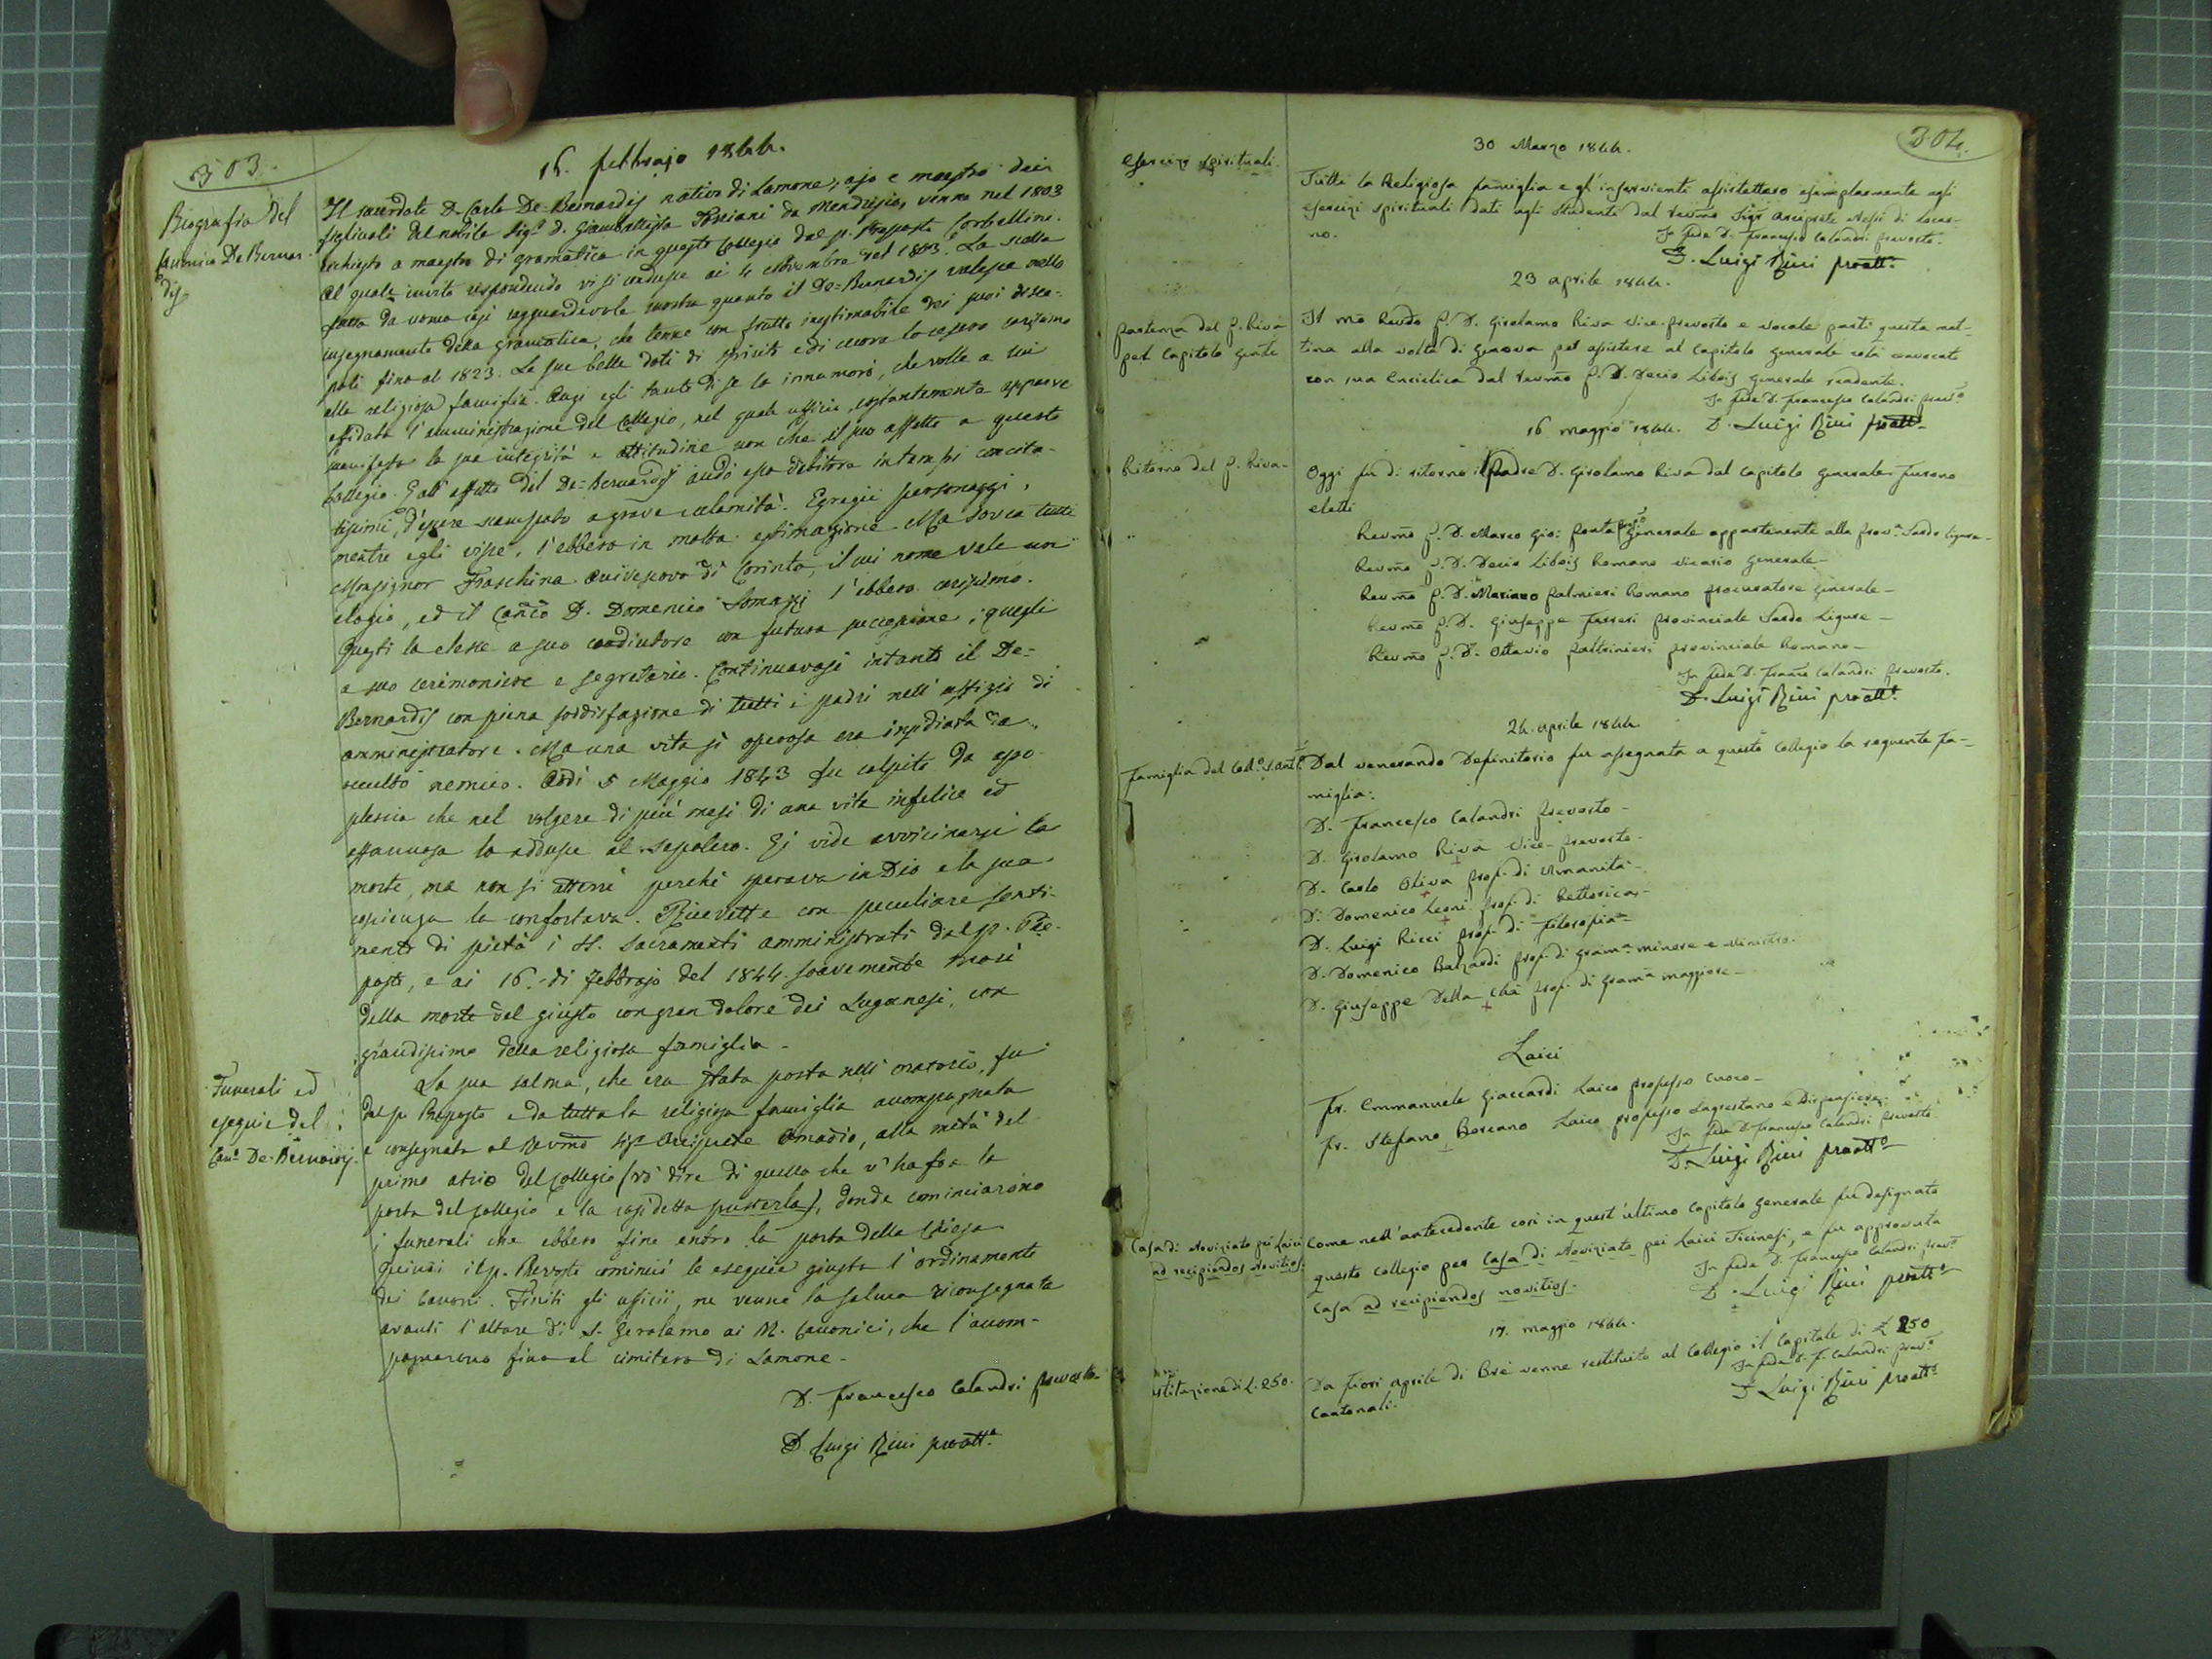 303.
16. febbrajo 1844.
Biografia del
Canonico De Bernar-
dis
Il sacerdote D. Carlo De-Bernardis nativo di Lamone, ajo e maestro dei
figliuoli del nobile Sigr. d. Giambattista da Mendrisio, venne nel 1803
richiesto a maestro di gramatica in questo Collegio dal p. Preposto Corbellino.
Al quale invito rispondendo vi si condusse ai 4 Novembre del 1803. La scelta
fatta da uomo così ragguardevole mostra quanto il De-Bernardis valesse nello
insegnamento della gramatica, che tenne con frutto inestimabile dei suoi disce-
poli fino al 1823. Le sue belle doti di spirito e di cuore lo resero carissimo
alla religiosa famiglia. Anzi egli tanto di se la innamorò, che volle a lui
affidata l'amministrazione del Collegio, nel quale ufficio costantemente apparve
manifesta la sua integrità e attitudine non che il suo affetto a questo
Collegio. E all'affetto del De-Bernardis andò esso debitore in tempi concita-
tissimi, d'essere scampato a grave calamità. Egregii personaggi,
mentre egli visse, l'ebbero in molta estimazione. Ma sovra tutti
Monsignor Fraschina Arcivescovo di Corinto, il cui nome vale un
elogio, ed il Canco. D. Domenico Lomazzi l'ebbero carissimo.
Questi lo elesse a suo coadiutore con futura successione; quegli
a suo cerimoniere e segretario. Continuavasi intanto il De-
Bernardis con piena soddisfazione di tutti i padri nell'uffizio di
amministratore. Ma una vita sì operosa era insidiata da
occulto nemico. Addì 5 Maggio 1843 fu colpito da apo-
plessia che nel volgere di più mesi di una vita infelice ed
affannosa lo addusse al sepolcro. Ei vide avvicinarsi la
morte, ma non si atterrì perchè sperava in Dio e la sua
coscienza lo confortava. Ricevette con peculiare senti-
mento di pietà i SS. Sacramenti amministrati dal p. Pre-
posto, e ai 16. di Febbrajo del 1844. soavemente morì
della morte del giusto con gran dolore dei Luganesi, con
grandissimo della religiosa famiglia.
Funerali ed
esequie del
Can.o De-Bernardis.
La sua salma, che era stata posta nell'oratorio, fu
dal p. Preposto e da tutta la religiosa famiglia accompagnata
e consegnata al Revmo. Sigr. Arciprete Amadio, alla metà del
primo atrio del Collegio (vo' dire di quello che v'ha fra la
porta del collegio e la così detta pusterla), donde cominciarono
i funerali che ebbero fine entro la porta della Chiesa
Quindi il p. Prevosto cominciò le esequie giusta l'ordinamento
dei Canoni. Finiti gli ufficii, ne venne la salma riconsegnata
avanti l'altare di S. Gerolamo ai M. Canonici, che l'accom-
pagnarono fino al cimitero di Lamone.
D. Francesco Calandri prevosto
D. Luigi Ricci proatt.o
304.
30 Marzo 1844.
Esercizi spirituali.
Tutta la Religiosa famiglia e gl'inservienti assistettero esemplarmente agli
esercizi spirituali dati agli studenti dal revmo Sigr. Arciprete Nessi di Locar-
no.
In fede D. Francesco Calandri prevosto.
D. Luigi Ricci proatt.o
23 aprile 1844.
Partenza del P. Riva
pel Capitolo Gen.le
Il mo Revdo P. D. Girolamo Riva vice-prevosto e vocale partì questa mat-
tina alla volta di Genova per assistere al Capitolo generale colà convocato
con sua enciclica dal revmo P. D. Decio Libois generale scadente.
In fede D. Francesco Calandri prev.o
16 maggio 1844. D. Luigi Ricci proatt.o
Ritorno del P. Riva-
Oggi fu di ritorno il Padre D. Girolamo Riva dal capitolo generale furono
eletti
Revmo P. D. Marco Gio: Ponta Generale appartenente alla prov.a Sardo Ligure-
Revmo P. D. Decio Libois Romano vicario generale-
Revmo P. D. Mariano Palmieri Romano procuratore generale-
Revmo P. D. Giuseppe Ferreri provinciale Sardo Ligure-
Revmo P. D. Ottavio Paltrinieri provinciale Romano-
In fede D. Franco Calandri prevosto.
D. Luigi Ricci proatt.o
24. aprile 1844.
Famiglia del Coll.o S. Ant.o
Dal venerando Definitorio fu assegnata a questo collegio la seguente fa-
miglia:
D. Francesco Calandri prevosto-
D. Girolamo Riva Vice-prevosto-
D. Carlo Oliva prof. di Umanità-
D. Domenico Leoni prof. di Rettorica-
D. Luigi Ricci prof. di Filosofia-
D. Domenico Balzardi prof. di gram.a minore e ministro.
D. Giuseppe Della Chà prof. di gram.a maggiore-
Laici
Fr. Emmanuele Giaccardi Laico professo Cuoco-
Fr. Stefano Boreano Laico professo Sagrestano e Dispensiere.
In fede D. Francesco Calandri prevosto
D. Luigi Ricci proatt.o
Casa di Noviziato pei Laici
ad recipiendos novitios.
Come nell'antecedente così in quest'ultimo capitolo generale fu designato
questo collegio per Casa di Noviziato pei Laici Ticinesi, e fu approvata
Casa ad recipiendos novitios.
In fede D. Francesco Calandri prev.o
D. Luigi Ricci proatt.o
17. maggio 1844.
Restituzione di L. 250.
Da Fiori aprile di Brè venne restituito al Collegio il capitale di £ 250
Cantonali.
In fede D. F. Calandri prev.o
D. Luigi Ricci proatt.o